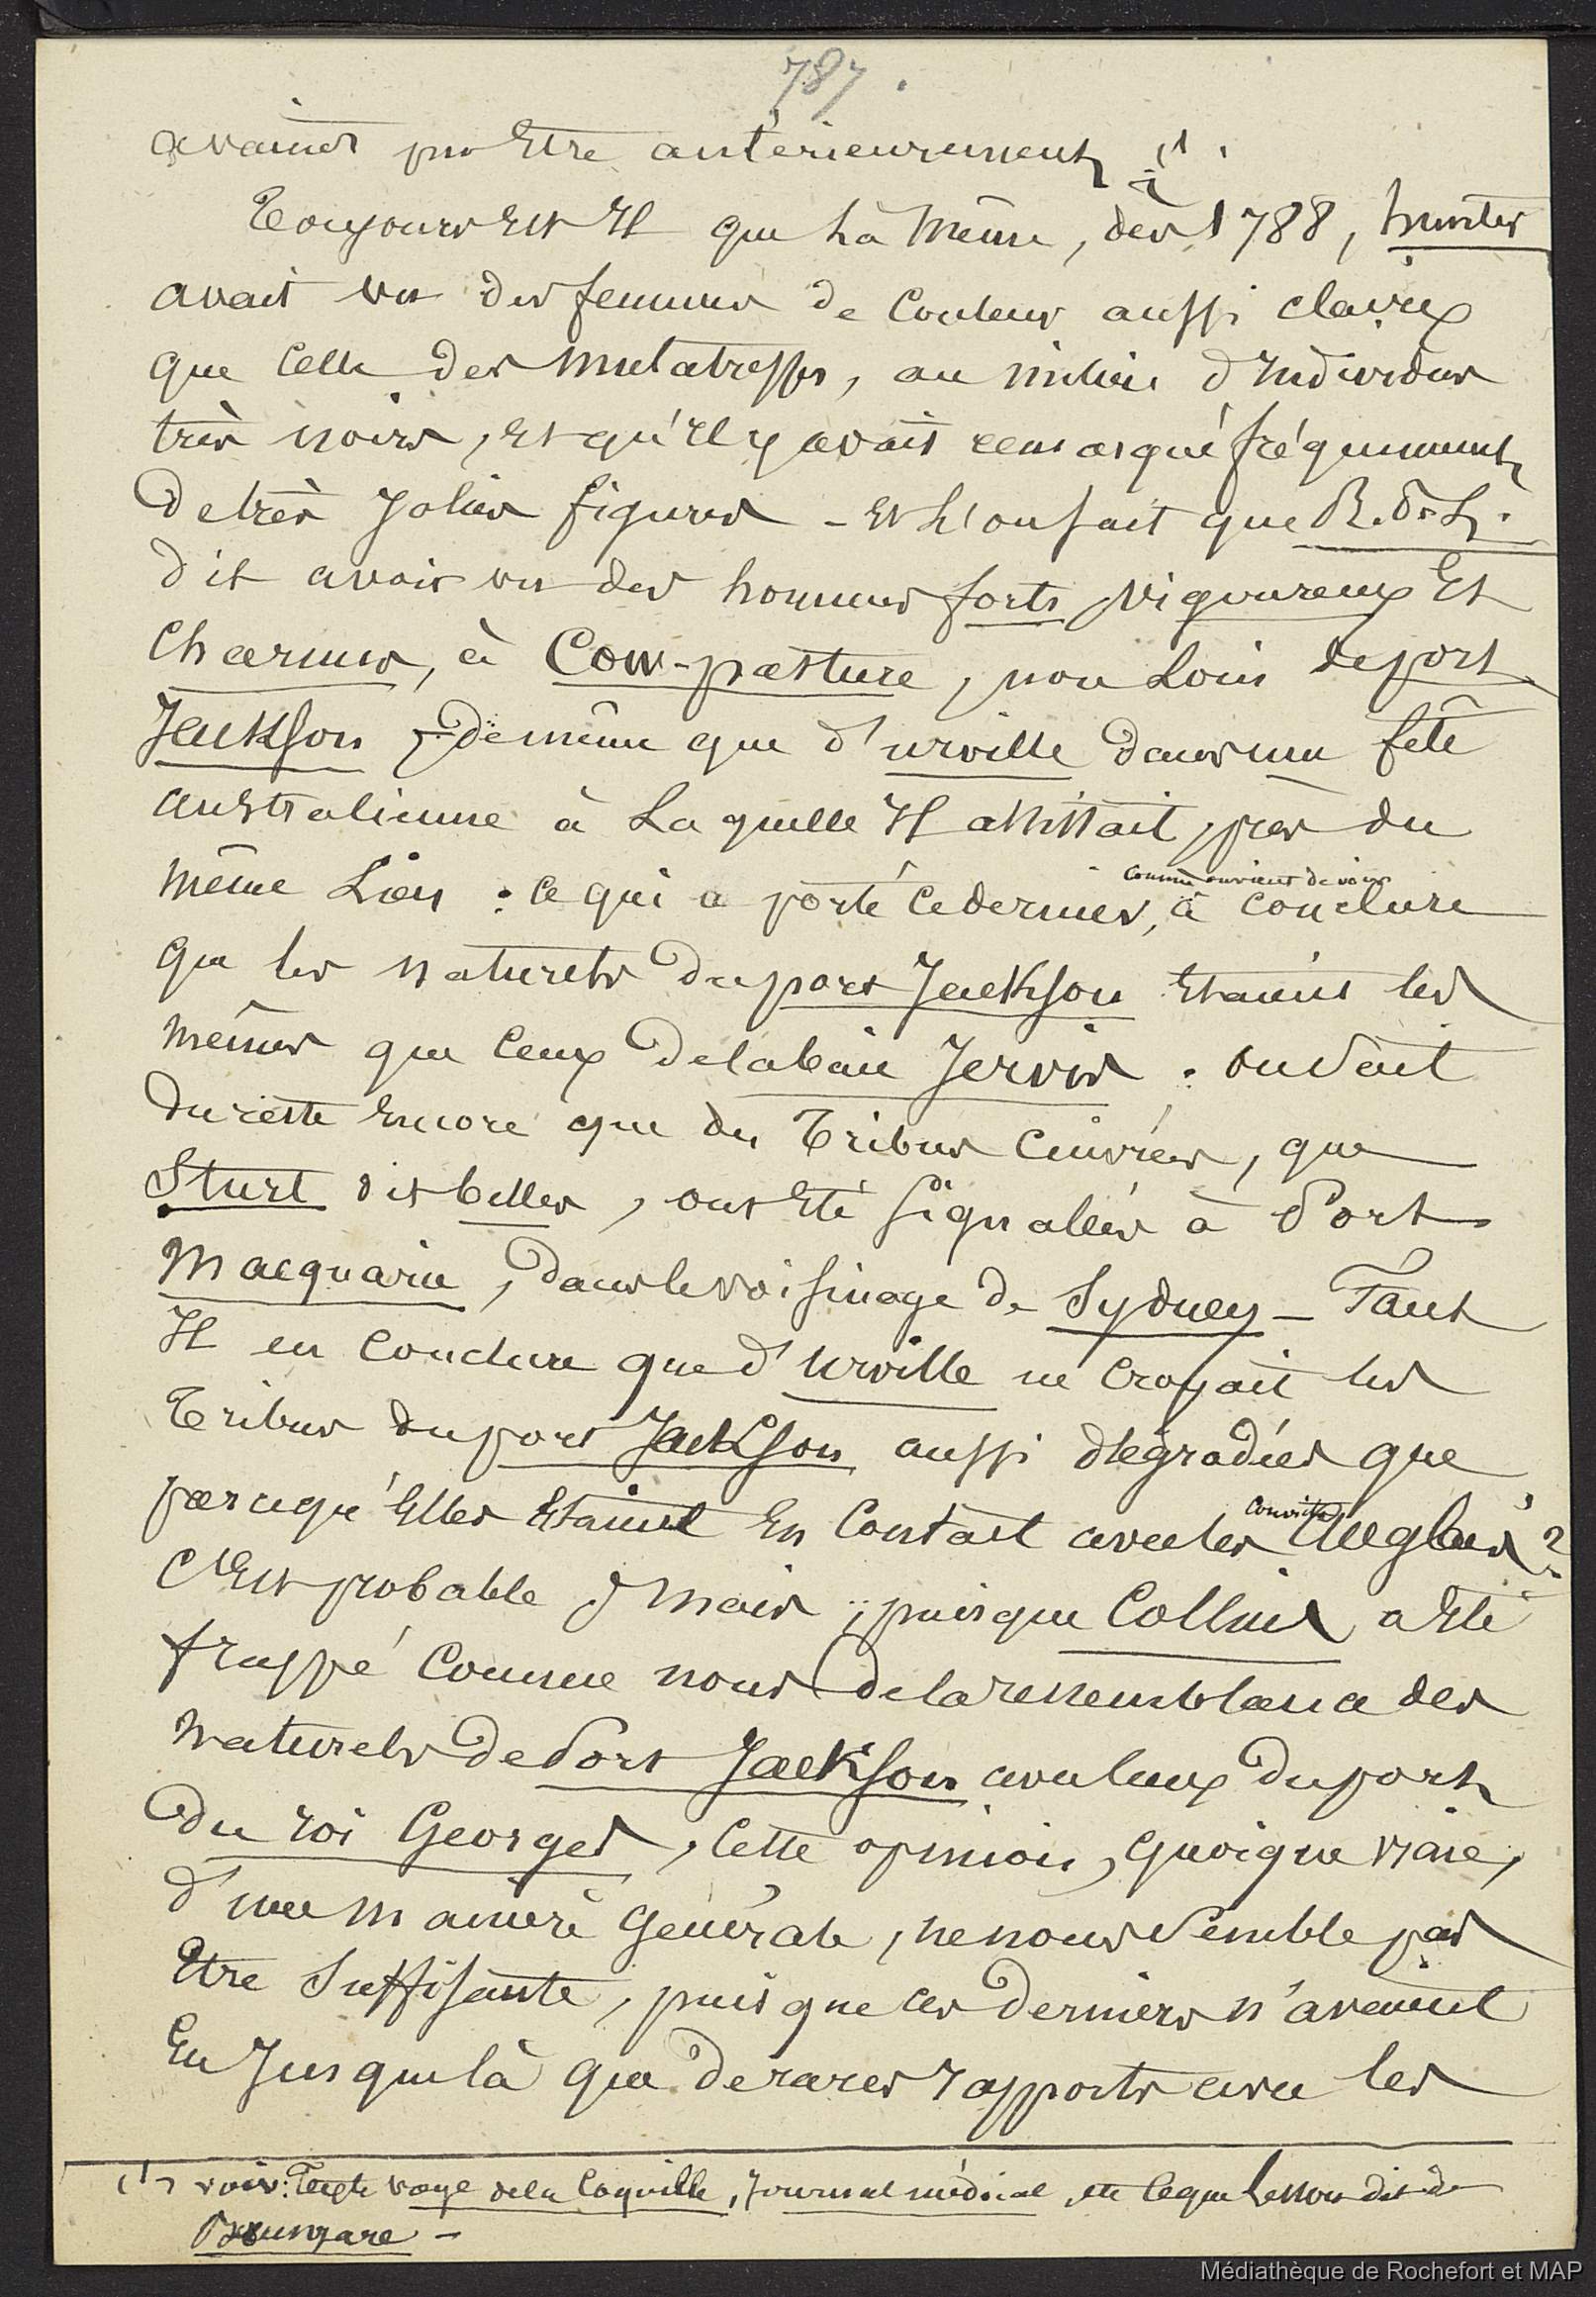 787.
avaient pu être antérieurement (1).
Toujours est il que là même, dès 1788, hunter
avait vu des femmes de couleur aussi claire
que celle des mulatresses, au milieu d'individus
très noirs, et qu'il y avait remarqué fréquemment
de très jolies figures - et l'on sait que R. P. L.
dit avoir vu des hommes forts, vigoureux et
charnus, à Cow-pasture, non loin de port
Jackson ; de même que d'urville dans une fête
australienne à laquelle il assistait, près du
même lieu : ce qui a porté ce dernier, comme on vient de voir, à conclure
que les naturels du port Jackson étaient les
mêmes que ceux de la baie Jervis. on sait
du reste encore que des tribus cuivrées, que
Sturt dit belles, ont été signalées à Port
Macquarie, dans le voisinage de Sydney - Faut
il en conclure que d'urville ne croyait les
tribus du port Jackson aussi dégradées que
parce qu'elles étaient en contact avec les convicts Anglais ?
C'est probable ; mais, puisque Collins a été
frappé comme nous de la ressemblance des
naturels de Port Jackson avec ceux du port
du roi Georges, cette opinion, quoique vraie,
d'une manière générale, ne nous semble pas
être suffisante, puisque ces derniers n'avaient
eu jusque là que de rares rapports avec les
(1) voir: Texte voye de la Coquille, Journal médical, et ce que Lesson dit de